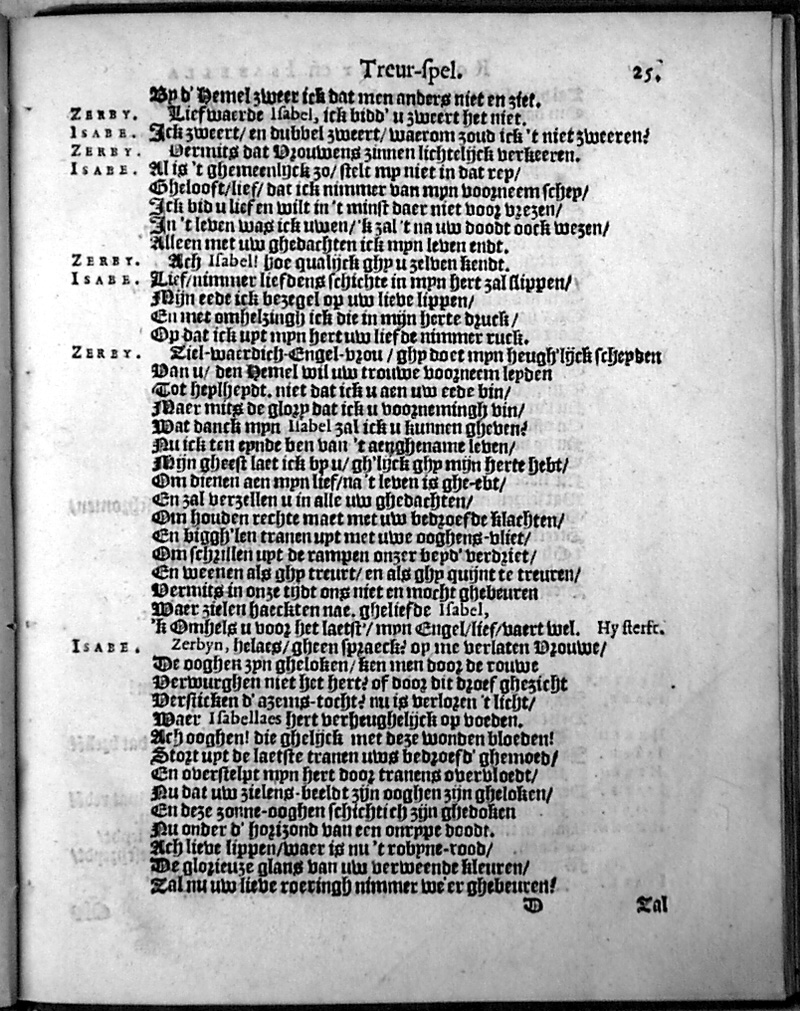 Treur-spel. 25.
By d' Hemel zweer ick dat men anders niet en ziet.
ZERBY. Lief waerde Isabel, ick bidd' u zweert het niet.
ISABE. Ick zweert/ en dubbel zweert/ waerom zoud ick 't niet zweeren?
ZERBY. Vermits dat Vrouwens zinnen lichtelijck verkeeren.
ISABE. Al is 't ghemeenlijck zo/ stelt my niet in dat rep/
Ghelooft/lief/ dat ick nimmer van myn voorneem schep/
Ick bid u lief en wilt in 't minst daer niet voor vrezen/
In 't leven was ick uwen/ 'k zal 't na uw doodt oock wezen/
Alleen met uw ghedachten ick myn leven endt.
ZERBY. Ach Isabel! hoe qualijck ghy u zelven kendt.
ISABE. Lief/nimmer liefdens schichte in myn hert zal slippen/
Mijn eede ick bezegel op uw lieve lippen/
En met omhelzingh ick die in mijn herte druck/
Op dat ick uyt myn hert uw liefde nimmer ruck.
ZERBY. Ziel-waerdich-Engel-vrou/ ghy doet myn heugh'lijck scheyden
Van u/ den Hemel wil uw trouwe voorneem leyden
Tot heylheydt. niet dat ick u aen uw eede bin/
Maer mits de glory dat ick u voornemingh vin/
Wat danck myn Isabel zal ick u kunnen gheven?
Nu ick ten eynde ben van 't aenghename leven/
Mijn gheest laet ick by u/ gh'lijck ghy mijn herte hebt/
Om dienen aen myn lief/na 't leven is ghe-ebt/
En zal verzellen u in alle uw ghedachten/
Om houden rechte maet met uw bedroefde klachten/
En biggh'len tranen uyt met uwe ooghens-vliet/
Om schrillen uyt de rampen onzer beyd' verdriet/
En weenen als ghy treurt/ en als ghy quijnt te treuren/
Vermits in onze tydt ons niet en mocht ghebeuren
Waer zielen haeckten nae. gheliefde Isabel,
'k Omhels u voor het laetst'/ myn Engel/lief/vaert wel. Hy sterft.
ISABE. Zerbyn, helaes/ gheen spraeck? op me verlaten Vrouwe/
De ooghen zyn gheloken/ ken men door de rouwe
Verwurghen niet het hert? of door dit droef ghezicht
Versticken d' azems-tocht? nu is verloren 't licht/
Waer Isabellaes hert verheughelijck op voeden.
Ach ooghen! die ghelijck met deze wonden bloeden!
Stort uyt de laetste tranen uws bedroefd' ghemoed/
En overstelpt myn hert door tranens overvloedt/
Nu dat uw zielens-beeldt zijn ooghen zijn gheloken/
En deze zonne-ooghen schichtich zijn ghedoken
Nu onder d' horizond van een onrype doodt.
Ach lieve lippen/waer is nu 't robyne-rood/
De glorieuze glans van uw verweende kleuren/
Zal nu uw lieve roeringh nimmer we'er ghebeuren?
D Zal